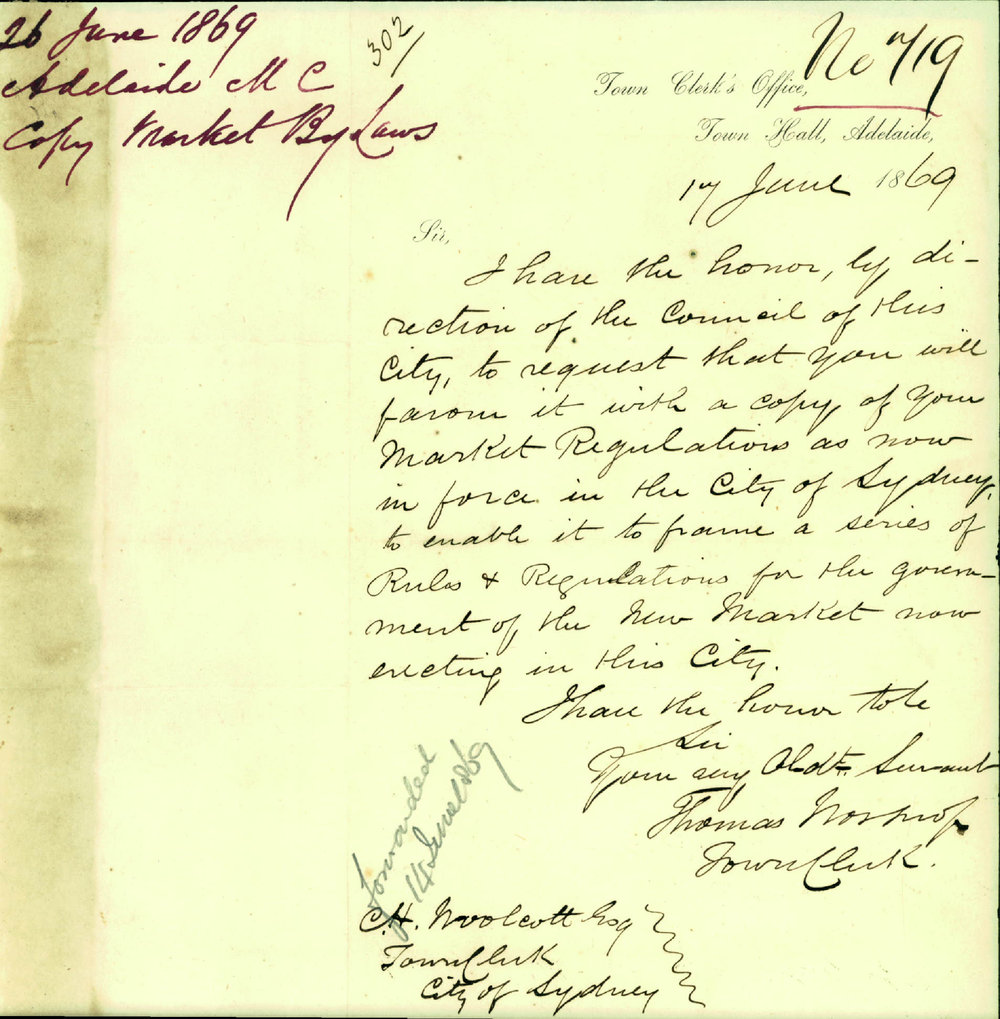 26 June 1869
Adelaide M C
Copy Market By Laws
302/
No 719
Town Clerk's Office,
Town Hall, Adelaide,
17 June 1869
Sir,
I have the honor, by di-
rection of the Council of this
City, to request that you will
favour it with a copy of your
Market Regulations as now
in force in the City of Sydney,
to enable it to frame a series of
Rules & Regulations for the govern-
ment of the New Market now
erecting in this City.
I have the honor to be
Sir
Your very Obdt. Servant
Thomas Worsnop
Town Clerk.
Forwarded
14 June 1869
C.H. Woolcott Esq
Town Clerk
City of Sydney